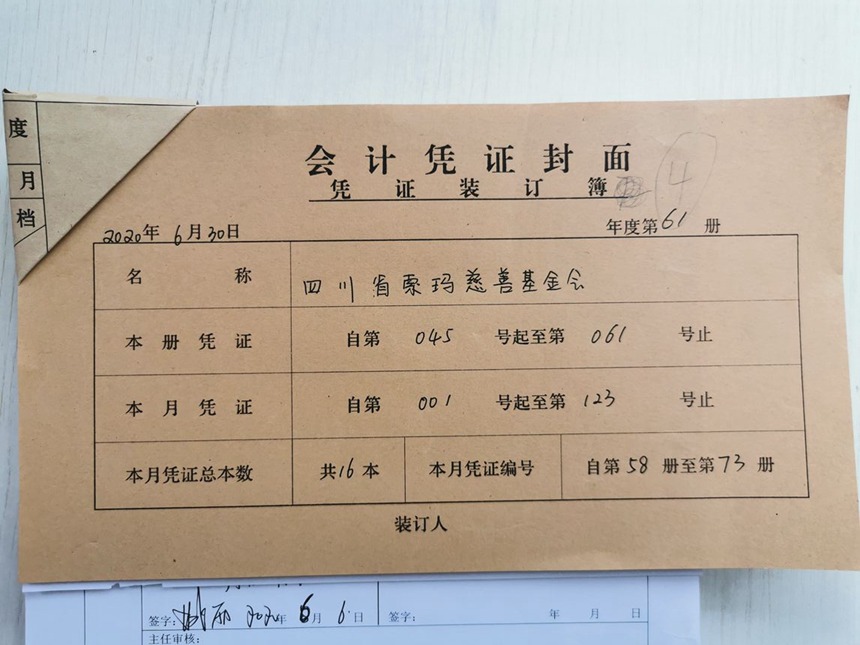 度
月
档
会计凭证封面
凭证装订簿 4
2020年6月30日 年度第61册
名称 四川省索玛慈善基金会
本册凭证 自第045号起至第061号止
本月凭证 自第001号起至第123号止
本月凭证总本数 共16本 本月凭证编号 自第58册至第73册
装订人
签字: 2020年6月6日 签字: 年月日
主任审核: